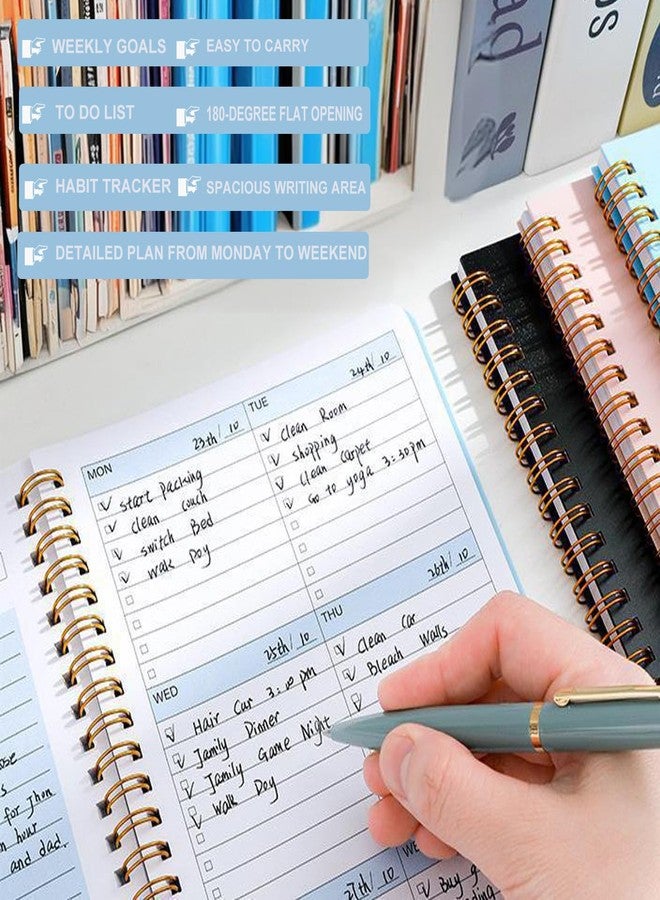 WEEKLY GOALS
EASY TO CARRY
TO DO LIST
180-DEGREE FLAT OPENING
HABIT TRACKER
SPACIOUS WRITING AREA
DETAILED PLAN FROM MONDAY TO WEEKEND
MON
23th/10
start Packing
clean couch
switch Bed
walk Doy
TUE
24th/10
clean Room
shopping
clean carpet
Go to yoga 3:30pm
WED
25th/10
Hair Car 3:00 pm
Jamily Dinner
Jamily Game Night
Walk Doy
THU
26th/10
Clean Car
Bleach Walls
27th/10
Buy
for Jhon
hour
and dad.